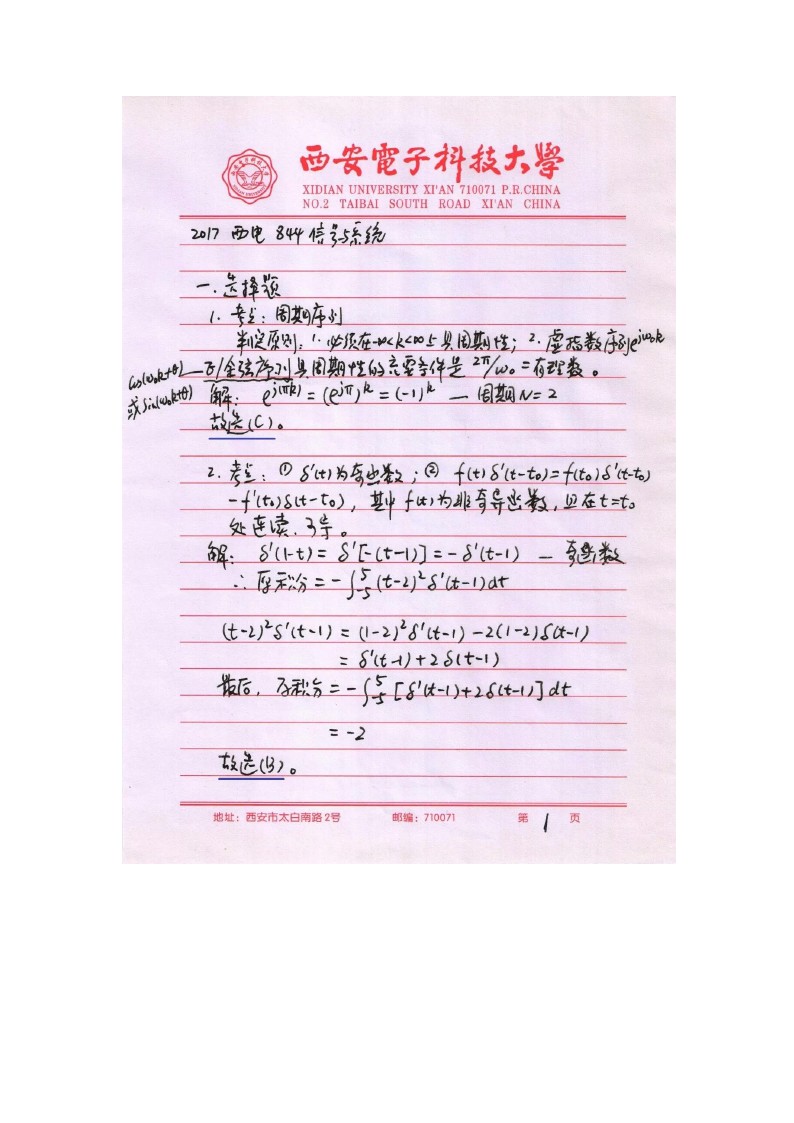 西安電子科技大學
XIDIAN UNIVERSITY XI'AN 710071 P.R.CHINA
NO.2 TAIBAI SOUTH ROAD XI'AN CHINA
2017 西电 844 信号与系统
一.选择题
1. 考点:周期序列
判定原则:1. 必须在-∞<k<∞上具周期性;2. 虚指数序列e^{jω₀k}
cos(ω₀k+θ)
或sin(ω₀k+θ)
与/余弦序列具周期性的充要条件是 2π/ω₀=有理数。
解: e^{j(πk)} = (e^{jπ})^k = (-1)^k — 周期N=2
故选(C)。
2. 考点:① δ'(t)为奇函数;② f(t)δ'(t-t₀)=f(t₀)δ'(t-t₀)
-f'(t₀)δ(t-t₀),其中f(t)为非奇异函数,且在t=t₀
处连续、可导。
解: δ'(1-t) = δ'[-(t-1)] = -δ'(t-1) — 奇函数
∴ 原积分 = -∫_{-5}^{5} (t-2)²δ'(t-1)dt
(t-2)²δ'(t-1) = (1-2)²δ'(t-1) -2(1-2)δ(t-1)
= δ'(t-1)+2δ(t-1)
最后, 原积分 = -∫_{-5}^{5} [δ'(t-1)+2δ(t-1)] dt
= -2
故选(B)。
地址:西安市太白南路2号 邮编:710071 第 1 页